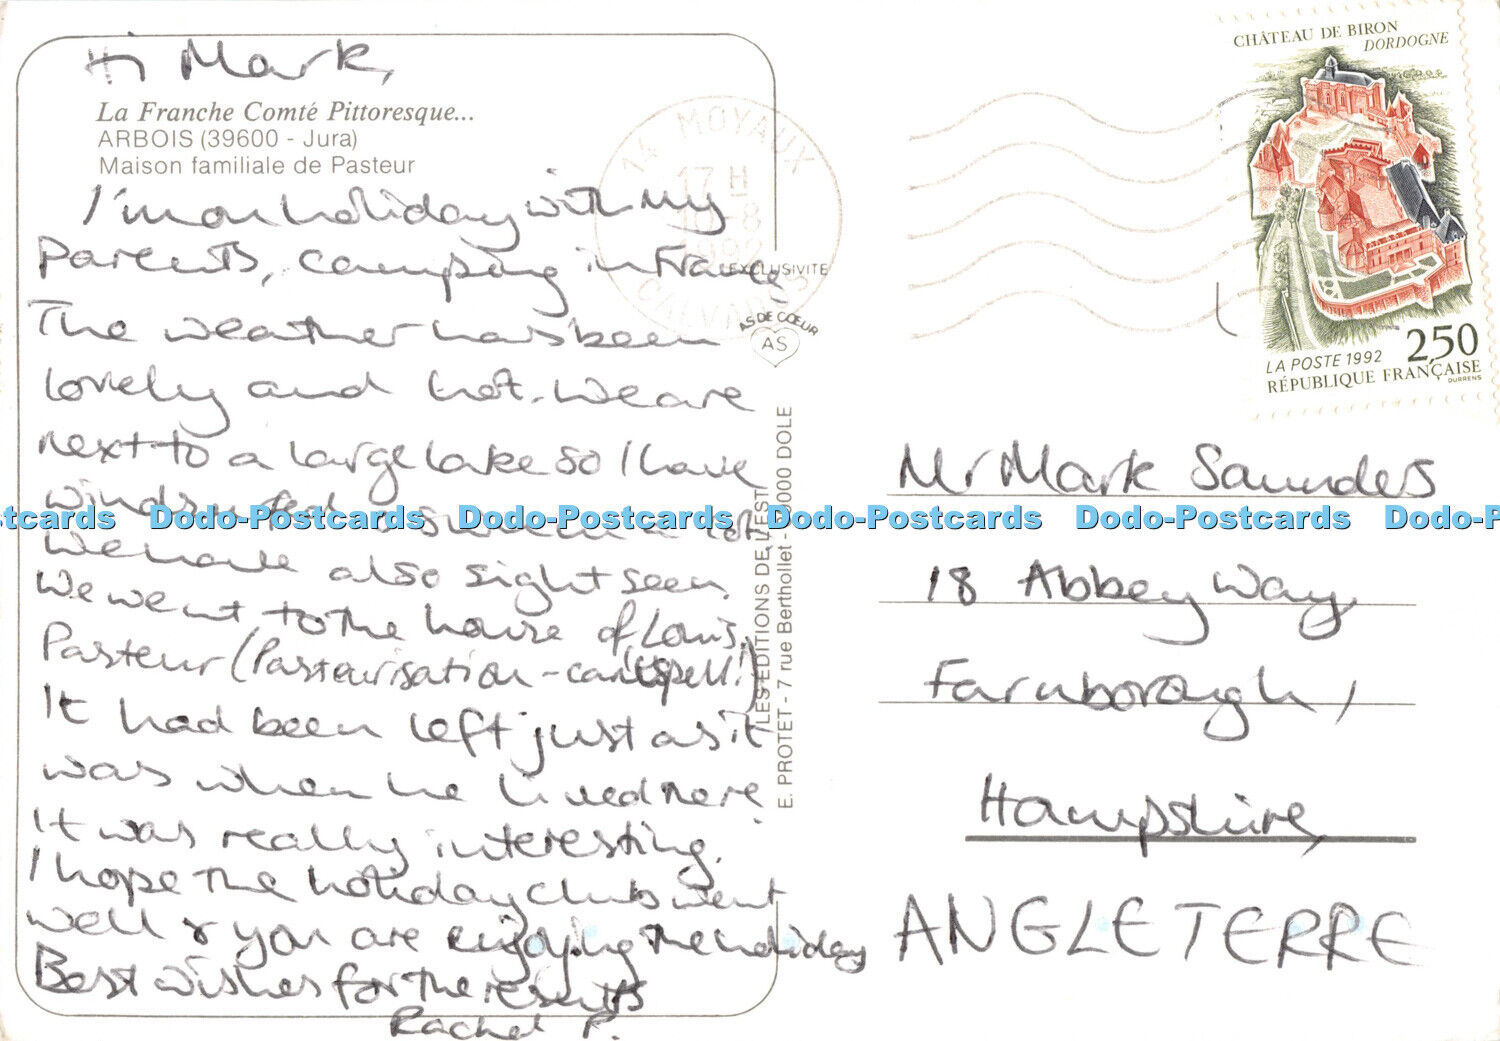 Hi Mark,
La Franche Comté Pittoresque...
ARBOIS (39600 - Jura)
Maison familiale de Pasteur
I'm on holiday with my
Parents, camping in France
The weather has been
lovely and hot. We are
next to a large lake so I have
windsurfed as when a lot
We have also sight seen.
We went to the house of Louis
Pasteur (Pasteurisation - can't spell!)
It had been left just as it
was when he lived here.
It was really interesting.
I hope the holiday clubs went
well & you are enjoying the holiday
Best wishes for the results
Rachel P.
14 MOYAUX
17 H
-8
1992
CALVADOS
EXCLUSIVITE
AS DE CŒUR
AS
LES EDITIONS DE L'EST
E. PROTET - 7 rue Berthollet - 39000 DOLE
CHÂTEAU DE BIRON
DORDOGNE
2,50
LA POSTE 1992
RÉPUBLIQUE FRANÇAISE
DURRENS
Mr Mark Saunders
18 Abbey Way,
Farnborough,
Hampshire,
ANGLETERRE
stcards Dodo-Postcards Dodo-Postcards Dodo-Postcards Dodo-Postcards Dodo-P